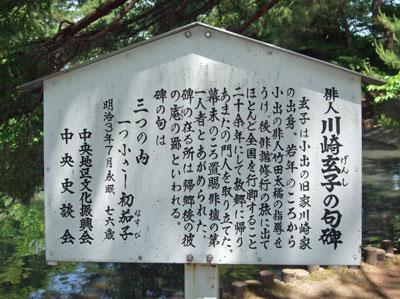 俳人 川崎玄子の句碑
げんし
玄子は小出の旧家川崎家
の出身、若年のころから
小出の俳人竹田太橘の指導を
うけ、後俳諧修行の旅に出て
ほとんど全国を行脚すること
二十余年にして故郷に帰り
あまたの門人を取り立てた。
幕末のころ置賜俳壇の第
一人者とあがめられた。
碑の在る所は帰郷後の彼
の庵の跡といわれる。
碑の句は
三つの内
一つふへし初茄子
はなすび
明治3年7月永眠、七六歳
中央地区文化振興会
中央史談会